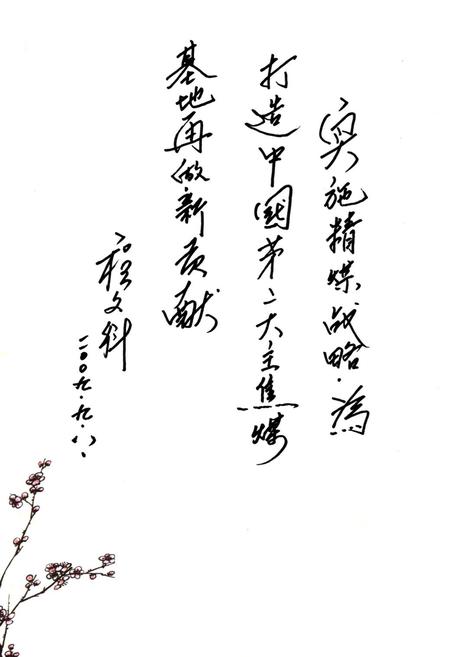 实施精煤战略·为
打造中国第二大主焦煤
基地再做新贡献
程文科
二〇〇九·九·八·